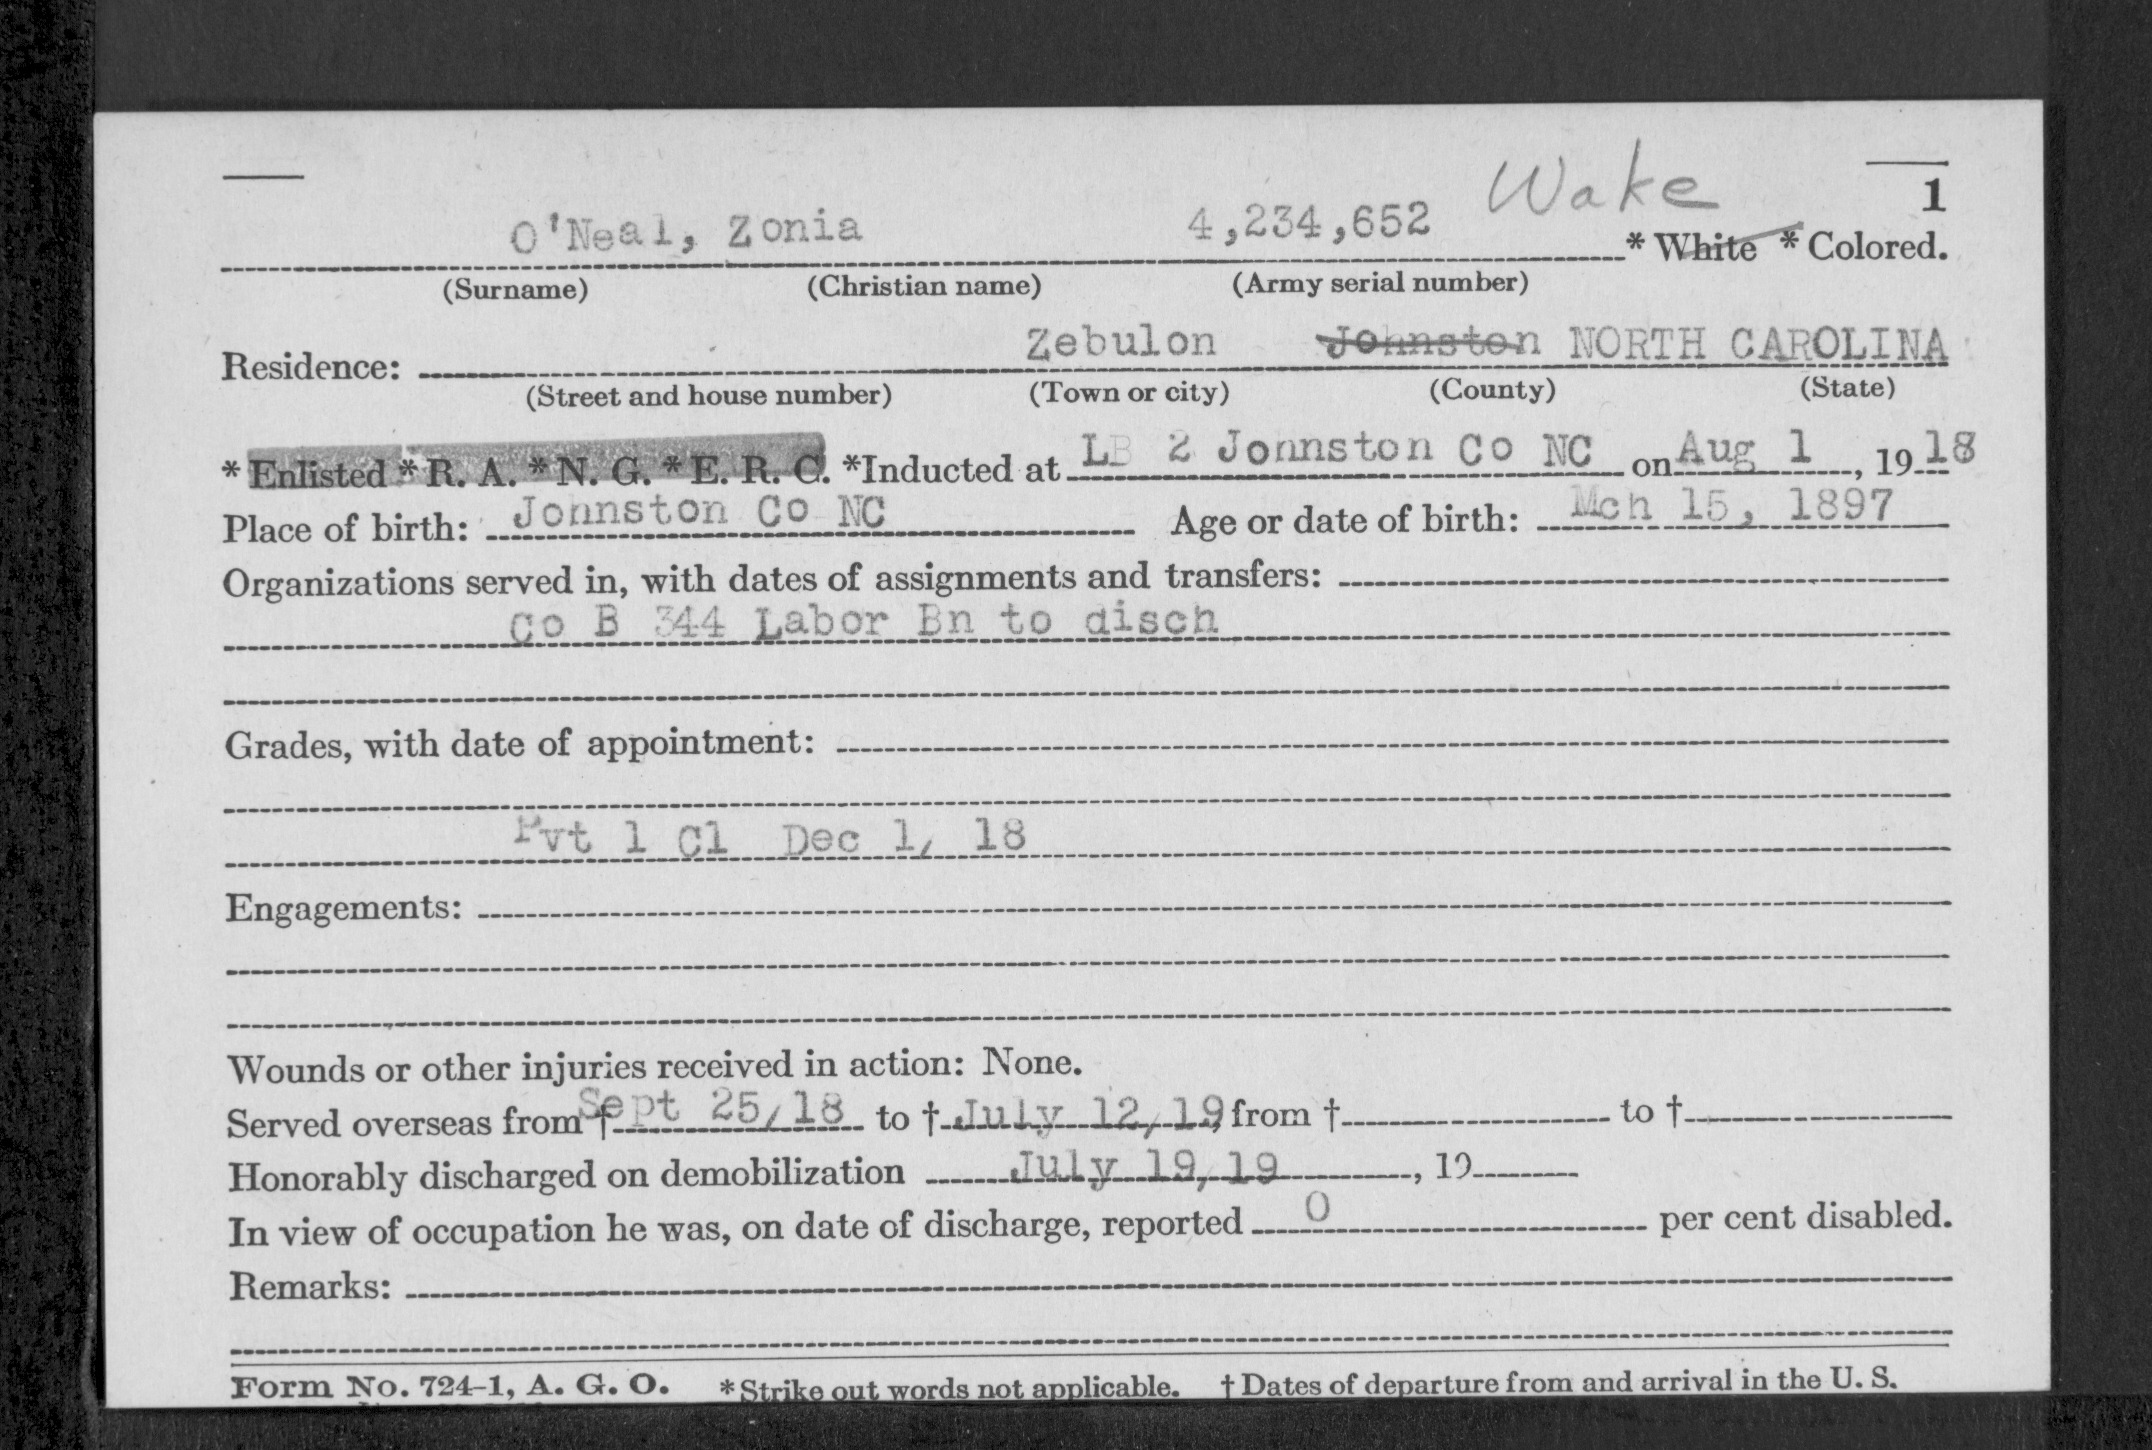 Wake
1
O'Neal, Zonia 4,234,652 * White * Colored.
(Surname) (Christian name) (Army serial number)
Residence: Zebulon Johnston NORTH CAROLINA
(Street and house number) (Town or city) (County) (State)
* Enlisted * R. A. * N. G. * E. R. C. *Inducted at LB 2 Johnston Co NC on Aug 1, 1918
Place of birth: Johnston Co NC Age or date of birth: Mch 15, 1897
Organizations served in, with dates of assignments and transfers:
Co B 344 Labor Bn to disch
Grades, with date of appointment:
Pvt 1 Cl Dec 1/ 18
Engagements:
Wounds or other injuries received in action: None.
Served overseas from † Sept 25/18 to † July 12/19, from † to †
Honorably discharged on demobilization July 19/19, 19
In view of occupation he was, on date of discharge, reported 0 per cent disabled.
Remarks:
Form No. 724-1, A. G. O. * Strike out words not applicable. † Dates of departure from and arrival in the U. S.